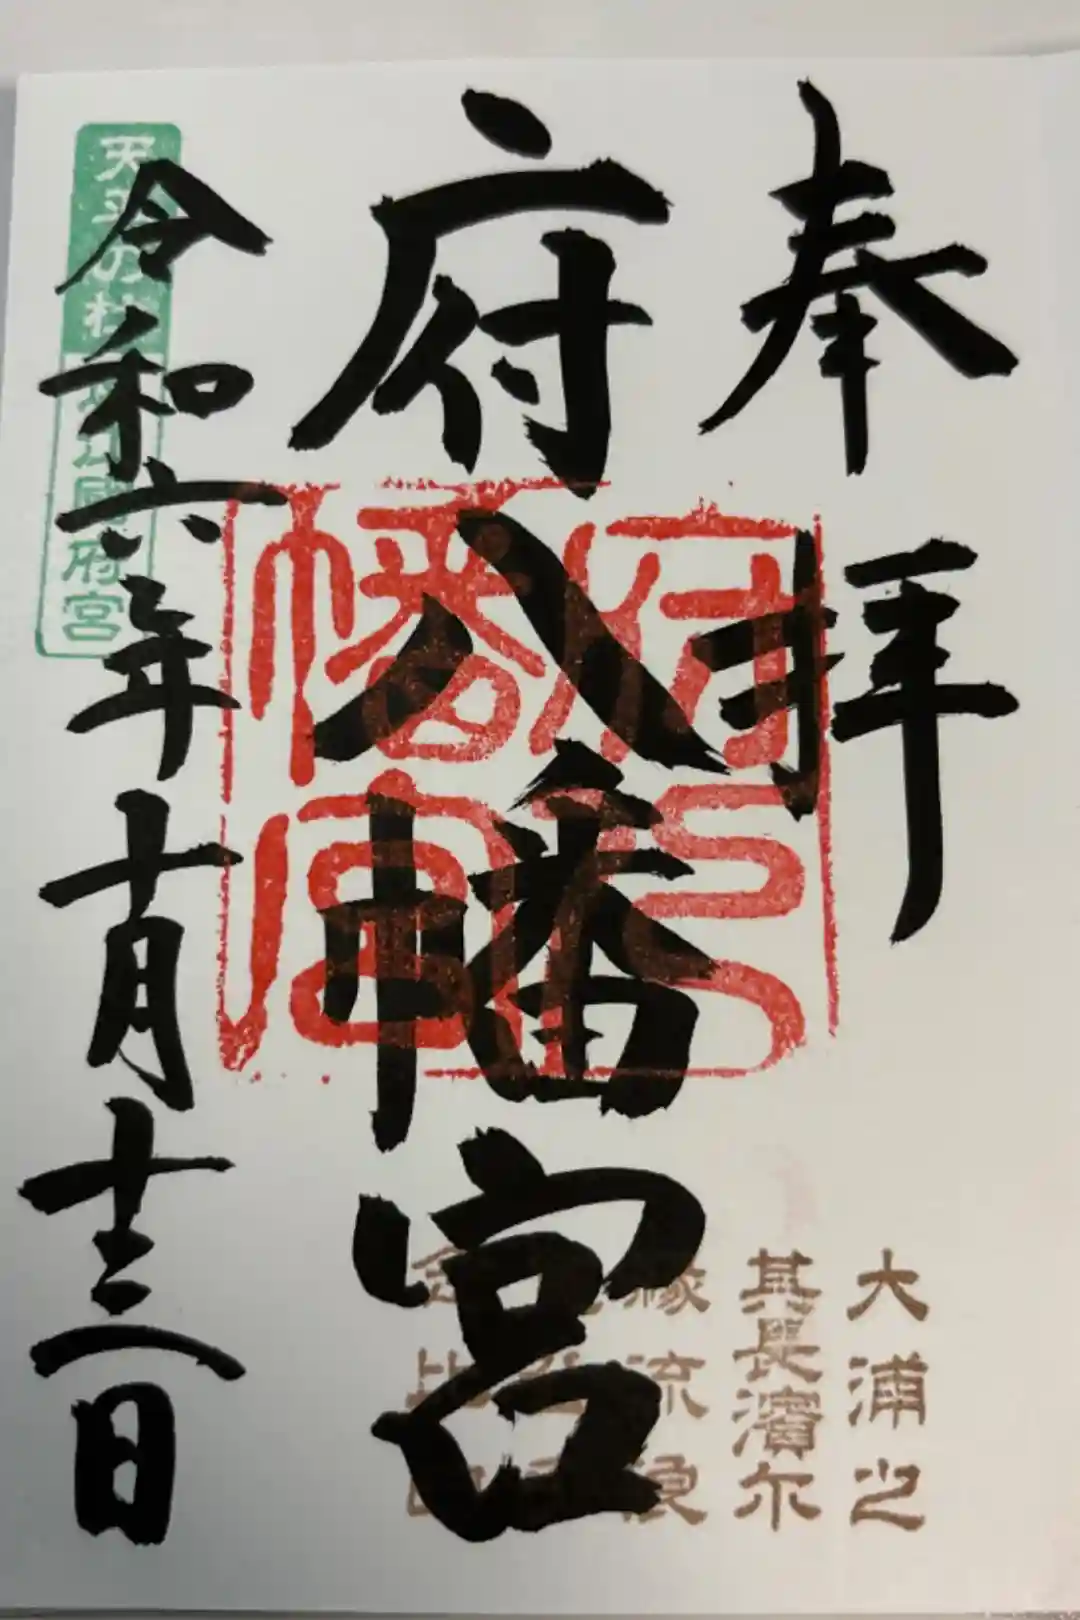 奉拝
府八幡宮
令和六年十月十三日
天平の杜
國府宮
府八
幡宮
大浦之
其長濱尓
縁流浪
念比日